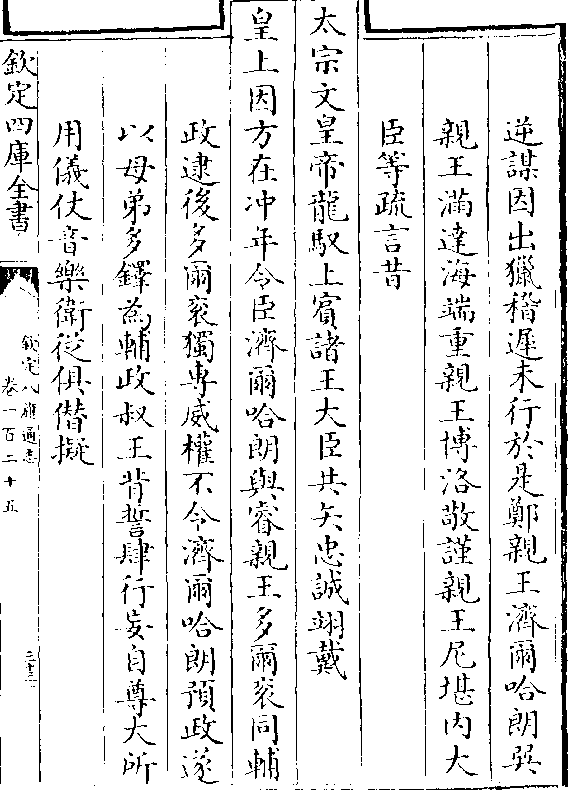 逆謀因出獵稽遲未行於是鄭親王濟爾哈朗巽
親王滿達海端重親王博洛敬謹親王尼堪内大
臣等疏言昔
太宗文皇帝龍馭上賓諸王大臣共矢忠誠翊戴
皇上因方在冲年令臣濟爾哈朗與睿親王多爾袞同輔
政逮後多爾袞獨專威權不令濟爾哈朗預政遂
以母弟多鐸為輔政叔王背誓肆行妄自尊大所
用儀仗音樂衛從俱僣擬
欽定四庫全書
欽定八旗通志
卷一百二十五
二十三